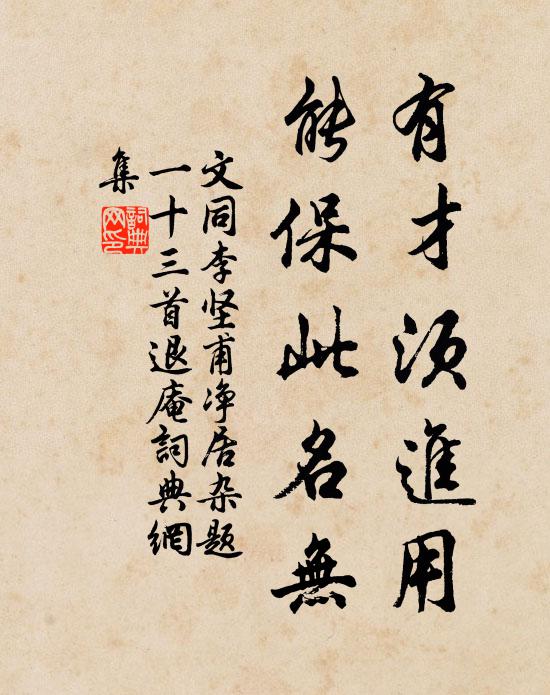 有才須進用
能保此名無
文同李坚甫净居杂题
一十三首退庵詞典網
集
詞典
网印